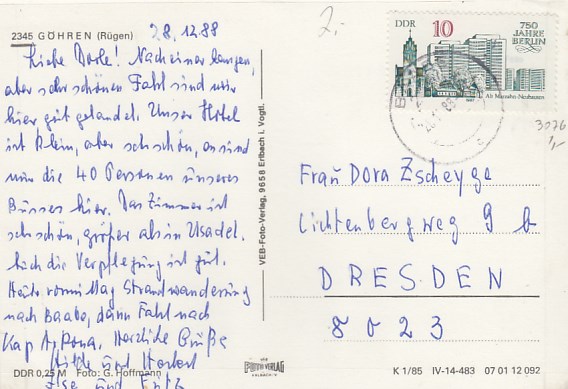 2345 GÖHREN (Rügen)
28.12.88
Liebe Dorle! Nach einer langen,
aber sehr schönen Fahrt sind wir
hier gut gelandet. Unser Hotel
ist klein, aber sehr schön, es sind
nur die 40 Personen unseres
Busses hier. Das Zimmer ist
sehr schön, größer als in Usadel.
Auch die Verpflegung ist gut.
Heute vormittag Strandwanderung
nach Baabe, dann Fahrt nach
Kap Arkona. Herzliche Grüße
Hilde und Herbert
Else und Erich
DDR 0,25 M Foto: G. Hoffmann
VEB-Foto-Verlag, 9658 Erlbach i. Vogtl.
2,-
DDR 10 750
JAHRE
BERLIN
Alt Marzahn-Neubauten
3076
1,-
Frau Dora Zscheyge
Lichtenbergweg 9 b
DRESDEN
8023
K 1/85 IV-14-483 07 01 12 092